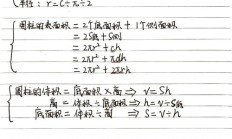 半径：r=C÷π÷2
圆柱的表面积 = 2个底面积 + 1个侧面积
= 2S底 + S侧
= 2πr² + Ch
= 2πr² + πdh
= 2πr² + 2πrh
圆柱的体积 = 底面积 × 高 ⇒ V=Sh
高 = 体积 ÷ 底面积 ⇒ h=V÷S底
底面积 = 体积 ÷ 高 ⇒ S=V÷h